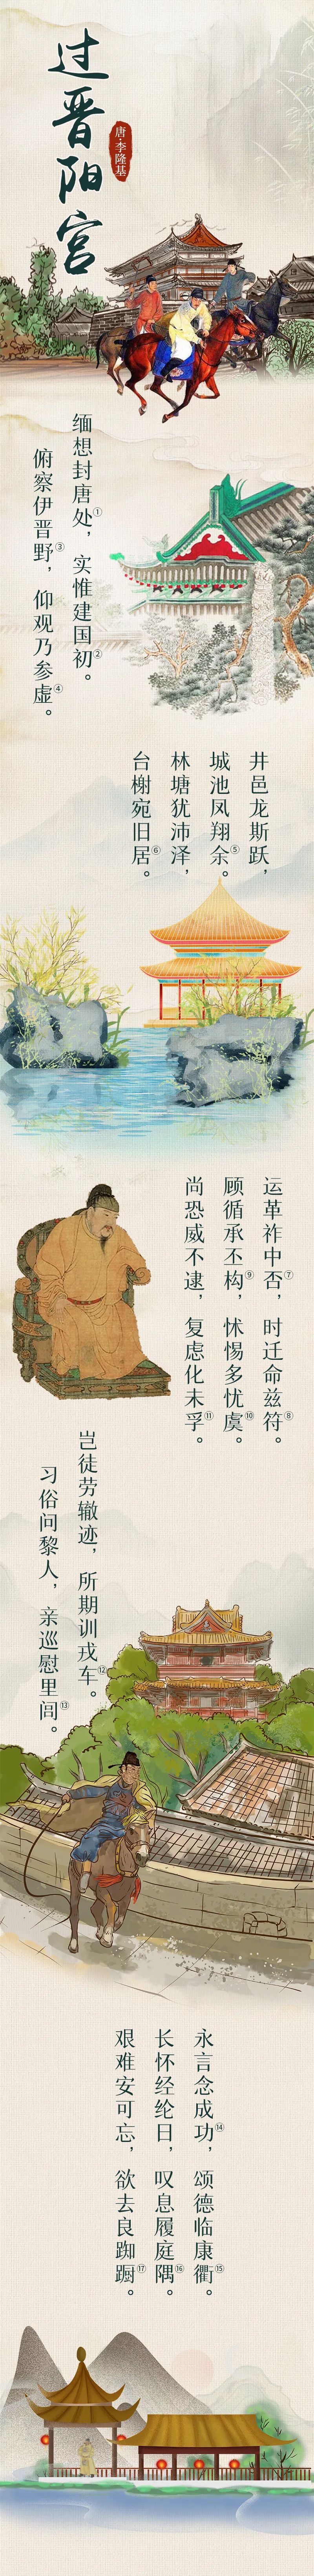 过晋阳宫
唐·李隆基
缅想封唐处①，实惟建国初②。
俯察伊晋野③，仰观乃参虚④。
井邑龙斯跃，
城池凤翔余⑤。
林塘犹沛泽，
台榭宛旧居⑥。
运革祚中否⑦，时迁命兹符⑧。
顾循承丕构⑨，怵惕多忧虞⑩。
尚恐威不逮，复虑化未孚⑪。
岂徒劳辙迹，所期训戎车⑫。
习俗问黎人，亲巡慰里闾⑬。
永言念成功⑭，颂德临康衢⑮。
长怀经纶日，叹息履庭隅⑯。
艰难安可忘，欲去良踟蹰⑰。